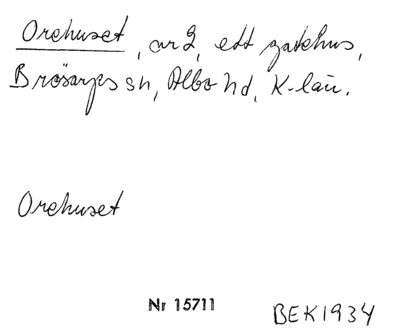 Orehuset, nr 2, ett gatehus,
Brösarps sn, Albo hd, K-län.
Orehuset
Nr 15711
BEK1934